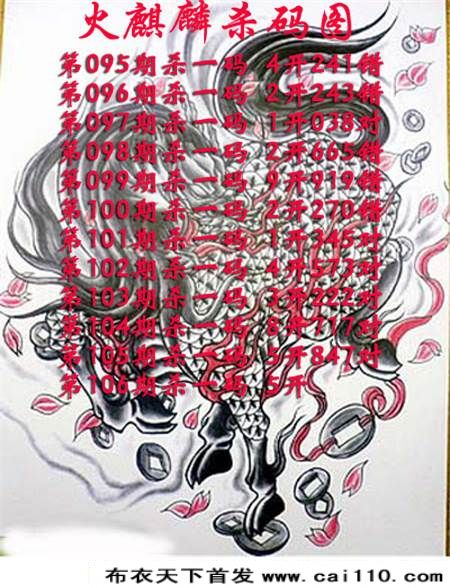 火麒麟杀码图
第095期杀一码 4开241错
第096期杀一码 2开243错
第097期杀一码 1开038对
第098期杀一码 2开665错
第099期杀一码 9开919错
第100期杀一码 2开270错
第101期杀一码 1开345对
第102期杀一码 4开573对
第103期杀一码 3开222对
第104期杀一码 8开717对
第105期杀一码 5开847对
第106期杀一码 5开
布衣天下首发 www.cai110.com